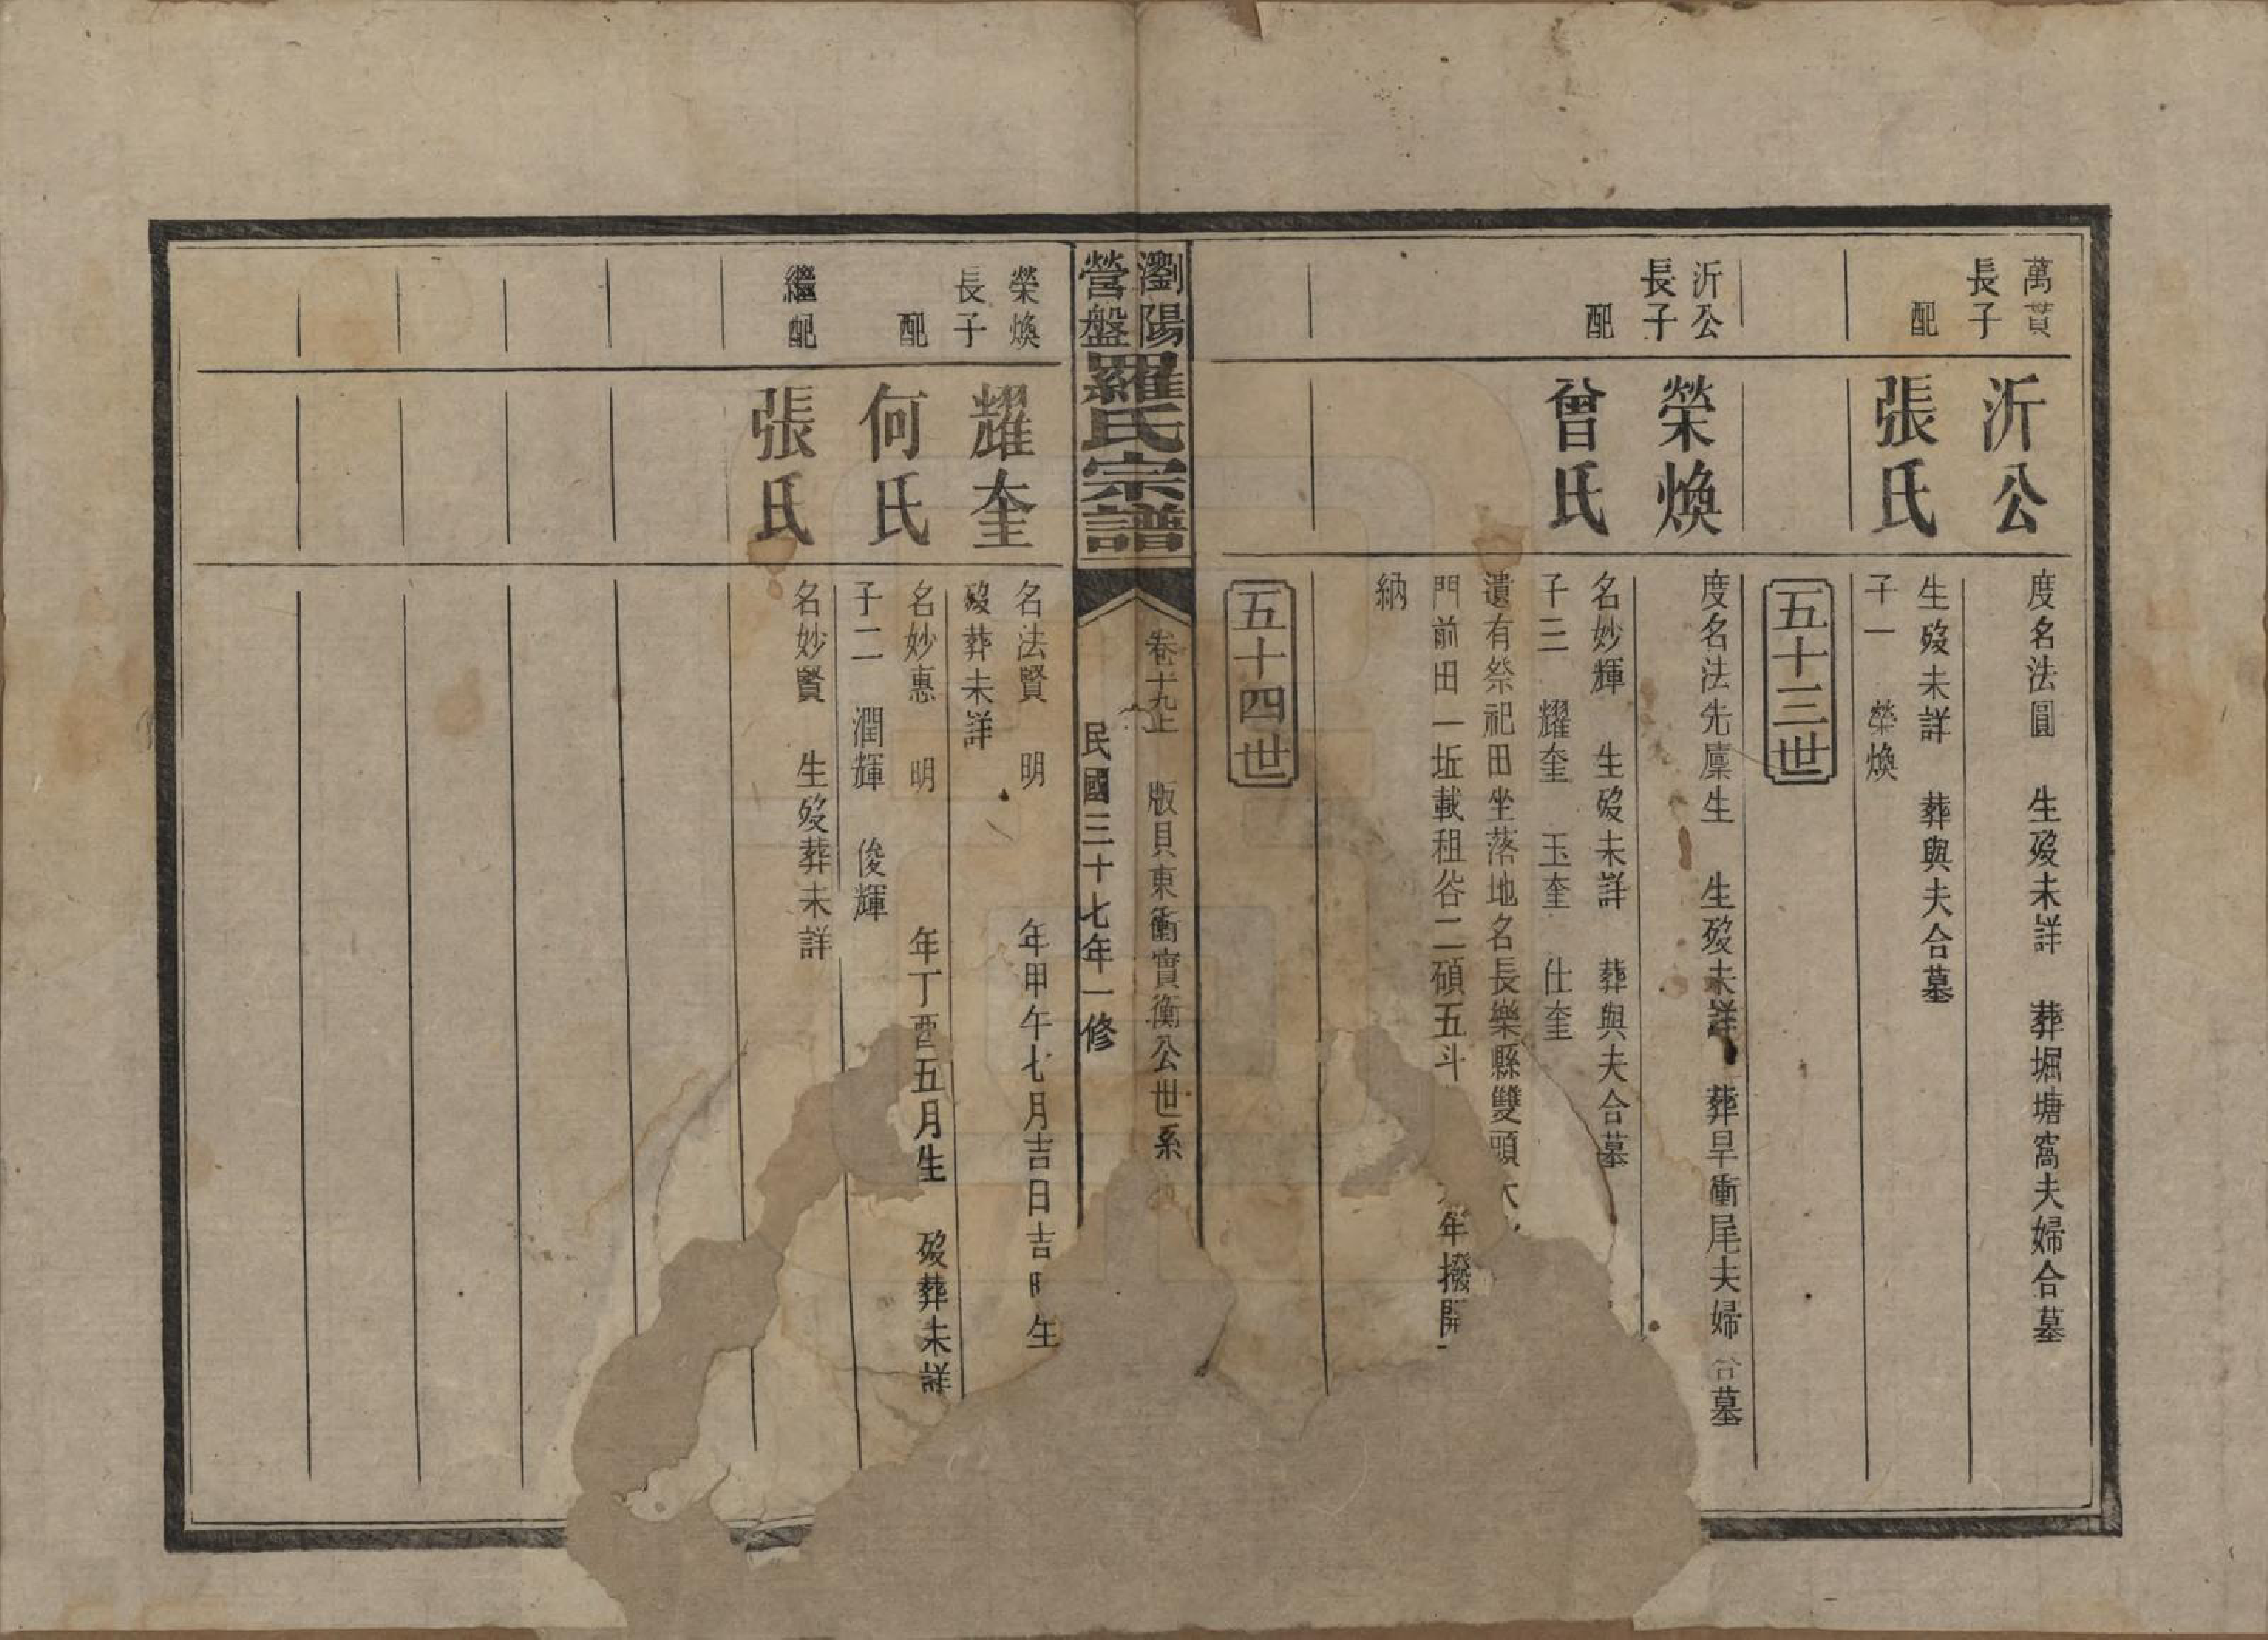 萬貫
長子
沂公
度名法圓　生歿未詳　葬堀塘窩夫婦合墓
配
張氏
生歿未詳　葬與夫合墓
子一　榮煥
五十三世
沂公
長子
榮煥
度名法先廩生　生歿未詳　葬旱衝尾夫婦合墓
配
曾氏
名妙輝　生歿未詳　葬與夫合墓
子三　耀奎　玉奎　仕奎
遺有祭祀田坐落地名長樂縣雙頭
門前田一坵載租谷二碩五斗　年撥開
納
五十四世
瀏陽
營盤
羅氏宗譜
卷十九上　版貝東衝實衡公世系
民國三十七年一修
榮煥
長子
耀奎
名法賢　明　年甲午七月吉日吉　生
歿葬未詳
配
何氏
名妙惠　明　年丁酉五月生　歿葬未詳
子二　潤輝　俊輝
繼配
張氏
名妙賢　生歿葬未詳